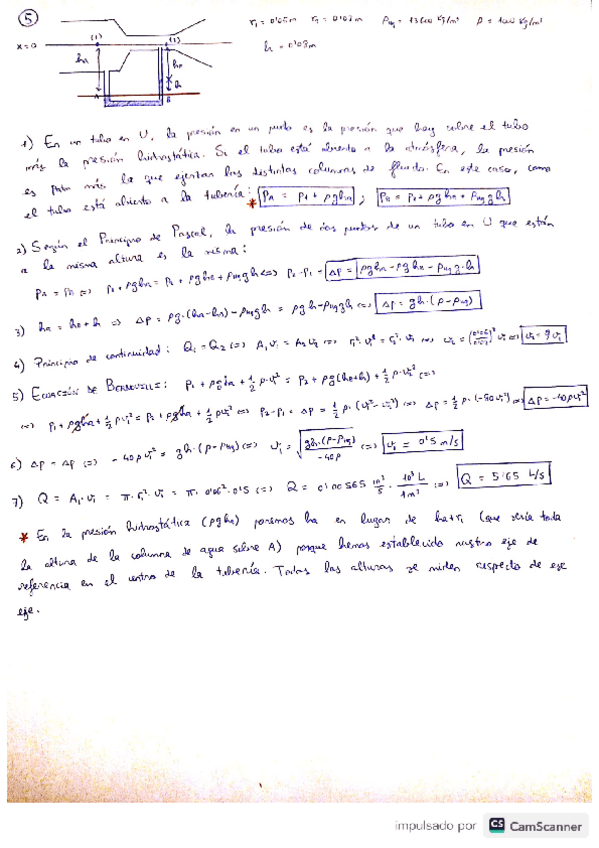 5
r₁ = 0'06 m r₂ = 0'02 m ρHg = 13600 kg/m³ ρ = 1000 kg/m³
h = 0'03 m
x=0 (1) (2)
hA hB h
A B
1) En un tubo en U, la presión en un punto es la presión que hay sobre el tubo
más la presión hidrostática. Si el tubo está abierto a la atmósfera, la presión
es Patm más la que ejercen las distintas columnas de fluido. En este caso, como
el tubo está abierto a la tubería: * PA = P₁ + ρghA ; PB = P₂ + ρghB + ρHg gh
2) Según el Principio de Pascal, la presión de dos puntos de un tubo en U que están
a la misma altura es la misma:
PA = PB => P₁ + ρghA = P₂ + ρghB + ρHg gh <=> P₂ - P₁ = Δp = ρghA - ρghB - ρHg·g·h
3) hA = hB + h => Δp = ρg·(hA - hB) - ρHg gh = ρgh - ρHg gh <=> Δp = gh·(ρ - ρHg)
4) Principio de continuidad: Q₁ = Q₂ <=> A₁v₁ = A₂v₂ <=> r₁²·v₁ = r₂²·v₂ <=> v₂ = (0'06/0'02)² v₁ <=> v₂ = 9v₁
5) Ecuación de Bernouilli: P₁ + ρghA + ½ρ·v₁² = P₂ + ρg(hB+h) + ½ρ·v₂² <=>
<=> P₁ + ρghA + ½ρv₁² = P₂ + ρghA + ½ρv₂² <=> P₂ - P₁ = Δp = ½ρ·(v₁² - v₂²) <=> Δp = ½ρ·(-80v₁²) <=> Δp = -40ρv₁²
6) Δp = Δp <=> -40ρv₁² = gh·(ρ - ρHg) <=> v₁ = √(gh·(ρ-ρHg)/-40ρ) <=> v₁ = 0'5 m/s
7) Q = A₁·v₁ = π·r₁²·v₁ = π·0'06²·0'5 <=> Q = 0'00565 m³/s · 10³L/1m³ <=> Q = 5'65 L/s
* En la presión hidrostática (ρghA) ponemos hA en lugar de hA+r₁ (que sería toda
la altura de la columna de agua sobre A) porque hemos establecido nuestro eje de
referencia en el centro de la tubería. Todas las alturas se miden respecto de ese
eje.
impulsado por CS CamScanner